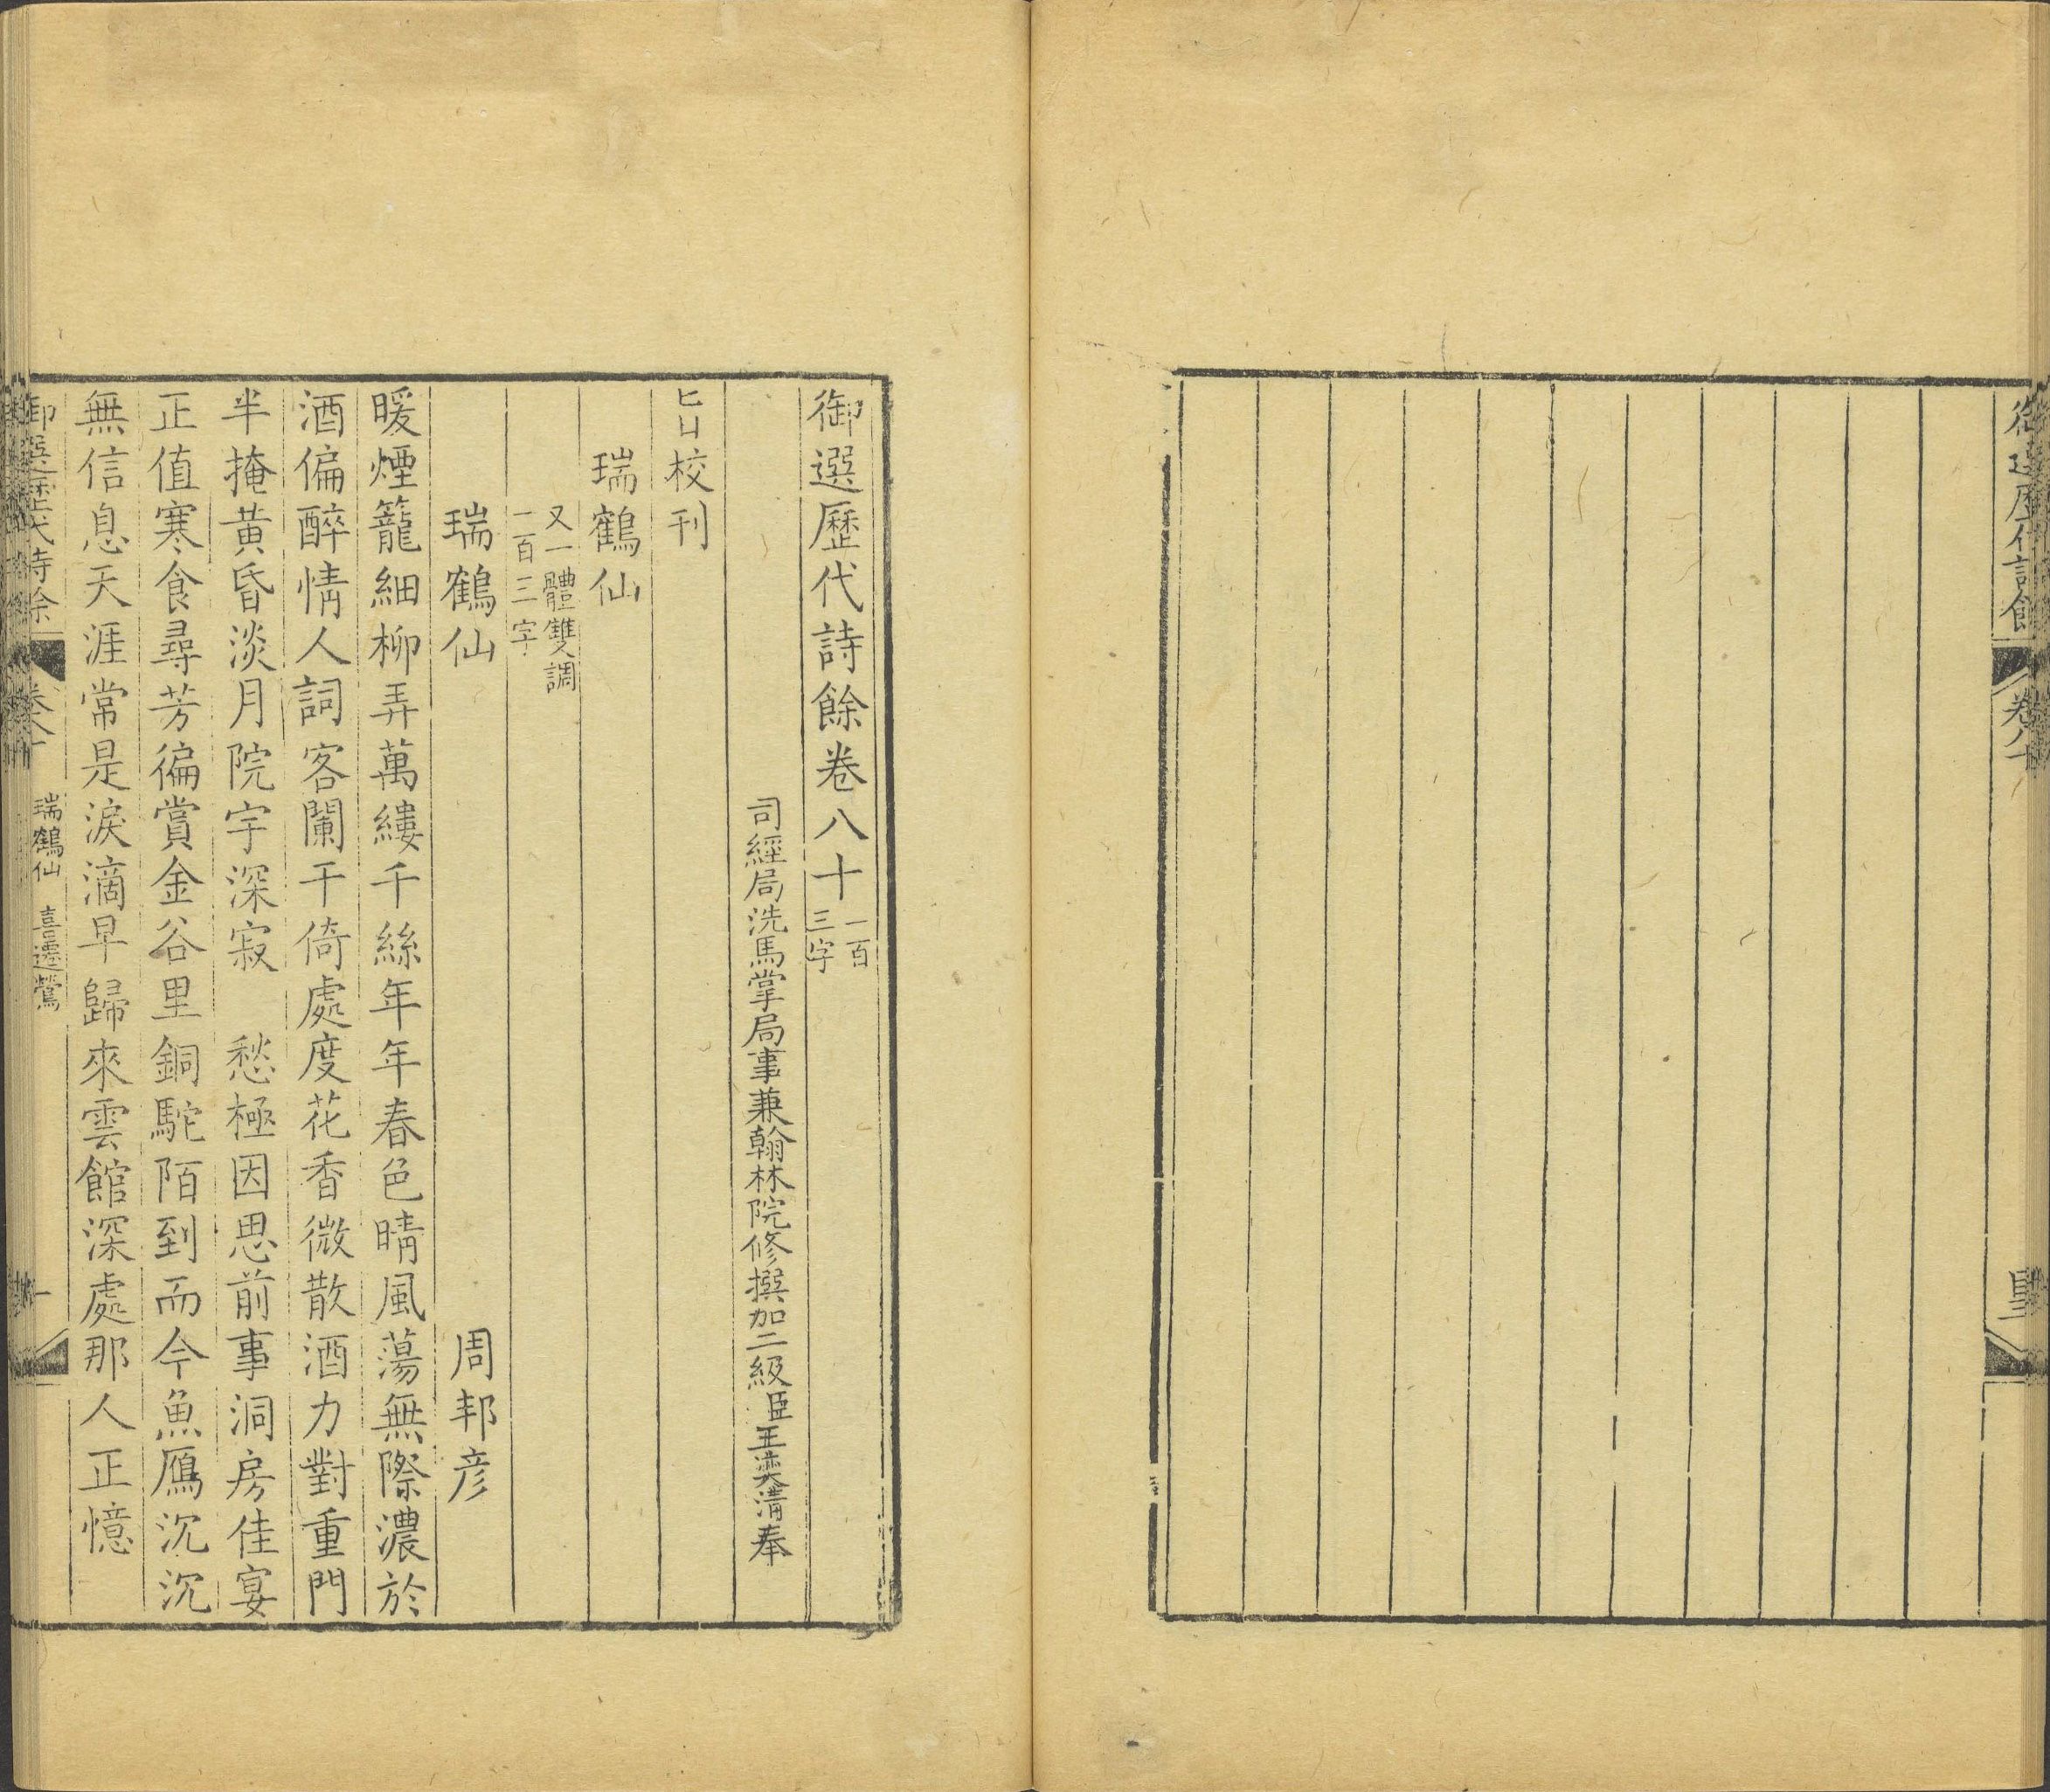 御選歷代詩餘
卷八十
御選歷代詩餘卷八十 一百三字
司經局洗馬掌局事兼翰林院修撰加二級臣王奕清奉
旨校刊
瑞鶴仙
又一體雙調
一百三字
瑞鶴仙 周邦彦
暖煙籠細柳弄萬縷千絲年年春色晴風蕩無際濃於
酒偏醉情人詞客闌干倚處度花香微散酒力對重門
半掩黃昏淡月院宇深寂 愁極因思前事洞房佳宴
正值寒食尋芳徧賞金谷里銅駝陌到而今魚鴈沉沉
無信息天涯常是淚滴早歸來雲館深處那人正憶
御選歷代詩餘 卷八十 瑞鶴仙 喜遷鶯 一